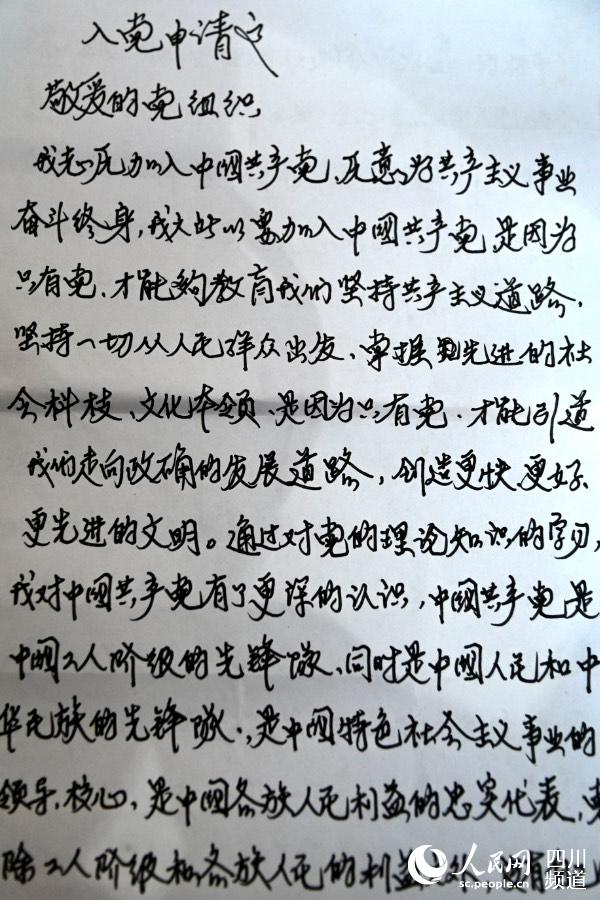 入党申请书
敬爱的党组织
我志愿加入中国共产党、愿意为共产主义事业
奋斗终身,我之所以要加入中国共产党、是因为
只有党、才能够教育我们坚持共产主义道路,
坚持一切从人民群众出发、掌握先进的社
会科技、文化本领、是因为只有党、才能引道
我们走向政确的发展道路,创造更快、更好、
更先进的文明。通过对党的理论知识的学习,
我对中国共产党有了更深的认识,中国共产党是
中国工人阶级的先锋队、同时是中国人民和中
华民族的先锋队、是中国特色社会主义事业的
领导,核心,是中国各族人民利益的忠实代表,党
除工人阶级和各族人民的利益
人民网 四川
sc.people.cn 频道